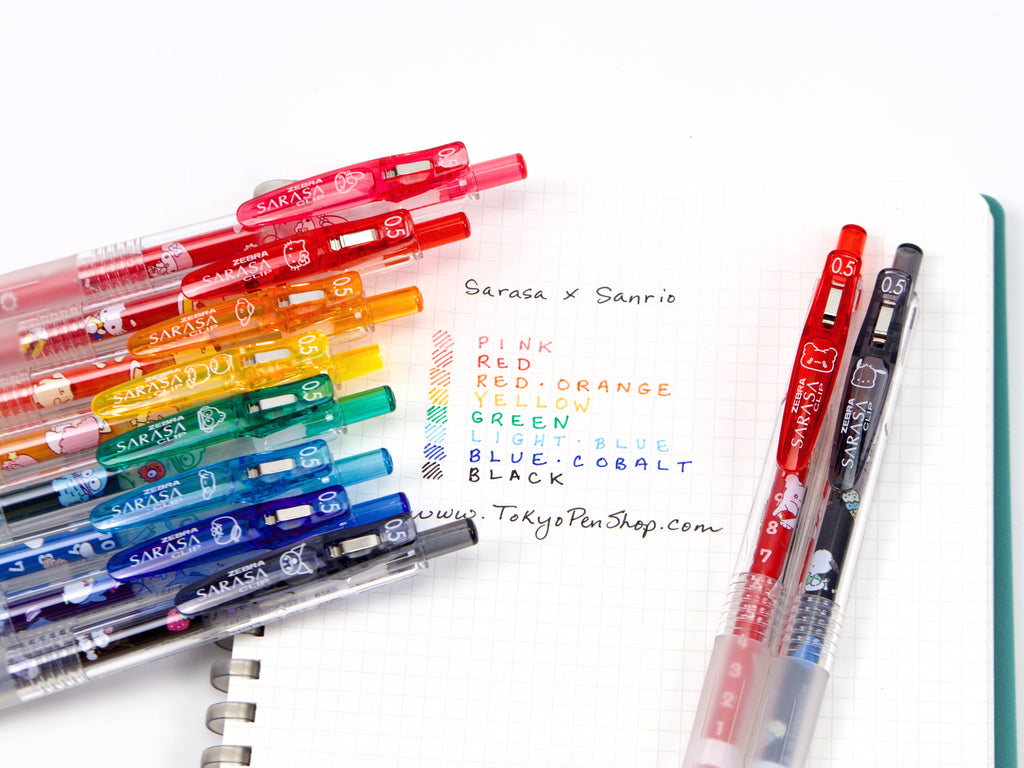 0.5
ZEBRA
SARASA
CLIP
0.5
ZEBRA
SARASA
CLIP
0.5
ZEBRA
SARASA
CLIP
0.5
ZEBRA
SARASA
CLIP
0.5
ZEBRA
SARASA
CLIP
0.5
ZEBRA
SARASA
CLIP
0.5
ZEBRA
SARASA
CLIP
0.5
ZEBRA
SARASA
CLIP
Sarasa x Sanrio
PINK
RED
RED·ORANGE
YELLOW
GREEN
LIGHT·BLUE
BLUE·COBALT
BLACK
www.TokyoPenShop.com
0.5
ZEBRA
SARASA
CLIP
8
7
3
2
1
0.5
ZEBRA
SARASA
CLIP